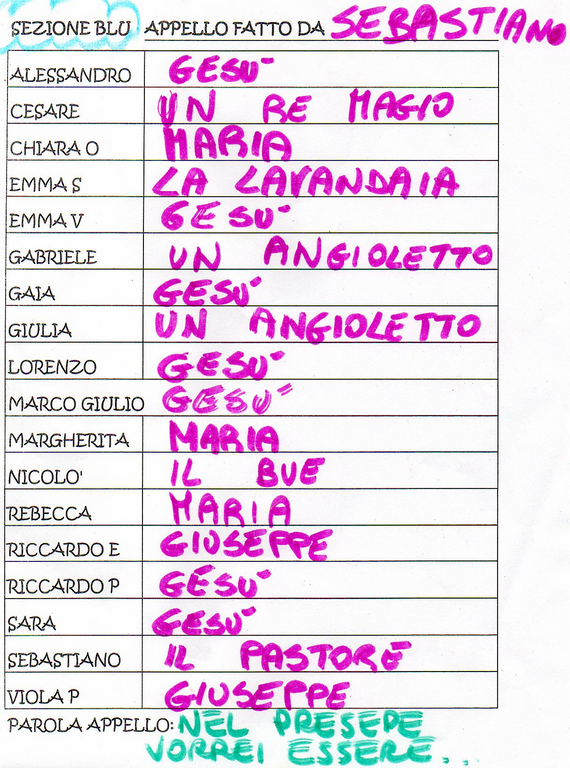 SEZIONE BLU APPELLO FATTO DA SEBASTIANO
ALESSANDRO GESU'
CESARE UN RE MAGIO
CHIARA O MARIA
EMMA S LA LAVANDAIA
EMMA V GESU'
GABRIELE UN ANGIOLETTO
GAIA GESU'
GIULIA UN ANGIOLETTO
LORENZO GESU'
MARCO GIULIO GESU'
MARGHERITA MARIA
NICOLO' IL BUE
REBECCA MARIA
RICCARDO E GIUSEPPE
RICCARDO P GESU'
SARA GESU'
SEBASTIANO IL PASTORE
VIOLA P GIUSEPPE
PAROLA APPELLO: NEL PRESEPE
VORREI ESSERE...